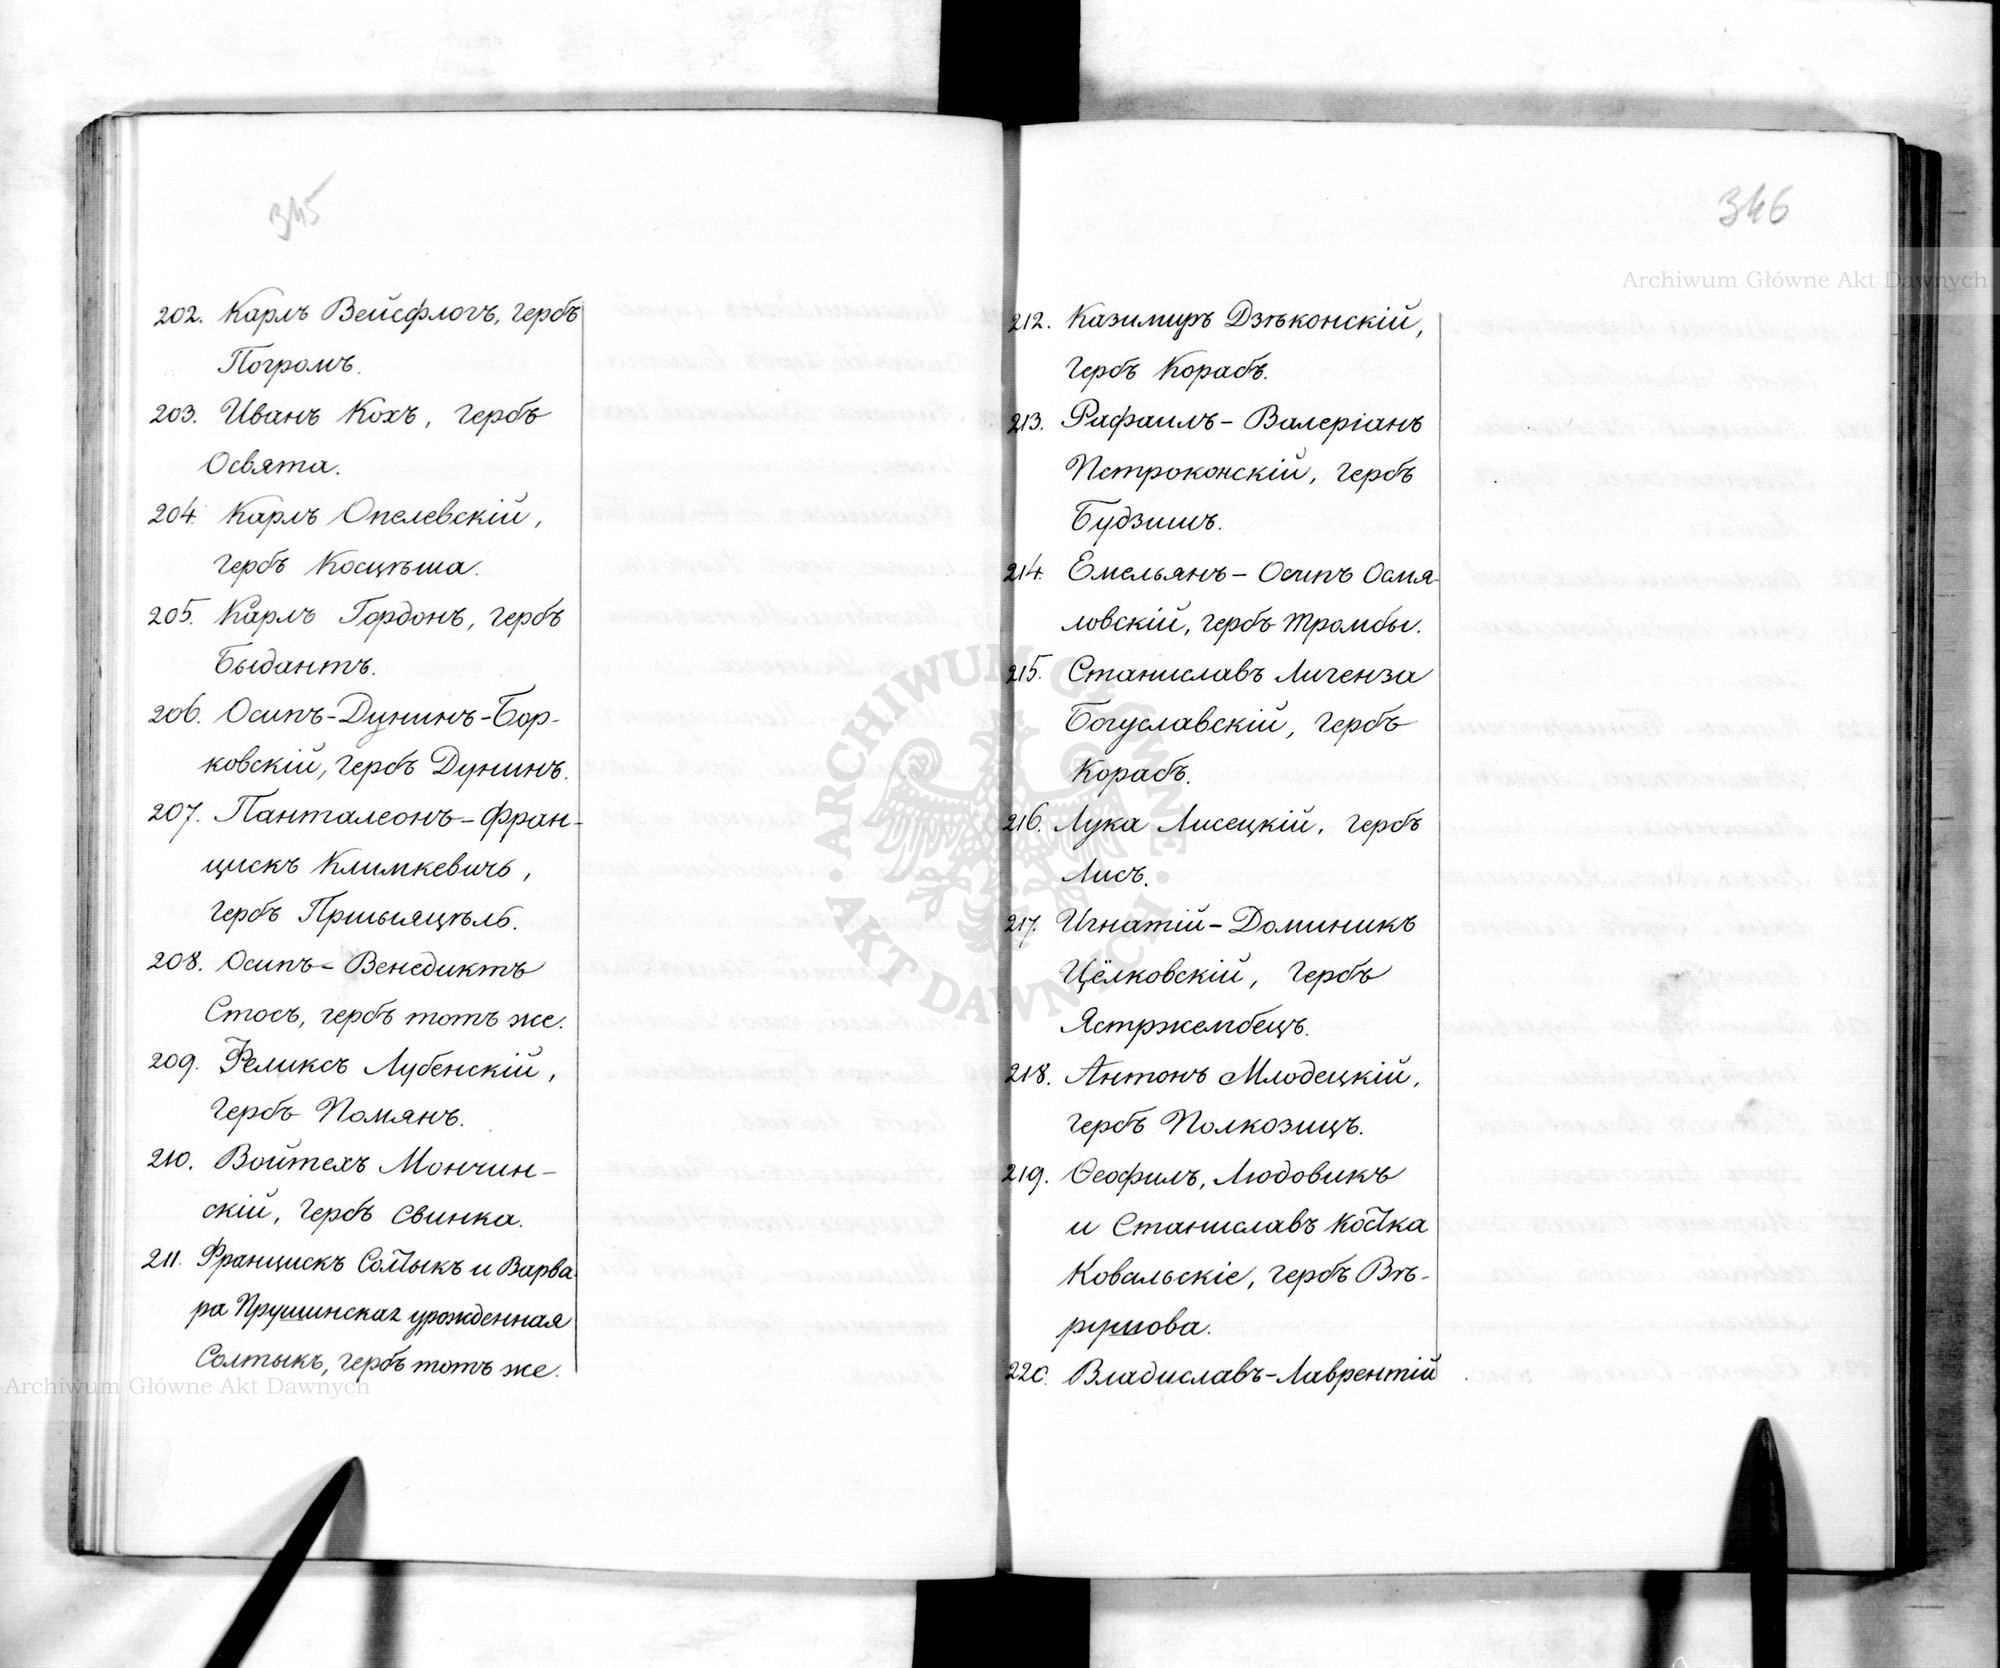 345
202. Карлъ Вейсфлогъ, гербъ
Погромъ.
203. Иванъ Кохъ, гербъ
Освята.
204. Карлъ Опелевскій,
гербъ Косцѣша.
205. Карлъ Гордонъ, гербъ
Быдантъ.
206. Осипъ-Дунинъ-Бор-
ковскій, гербъ Дунинъ.
207. Панталеонъ-Фран-
цискъ Климкевичъ,
гербъ Пршыяцѣль.
208. Осипъ-Венедиктъ
Стось, гербъ тотъ же.
209. Феликсъ Лубенскій,
гербъ Помянъ.
210. Войтехъ Мончин-
скій, гербъ Свинка.
211. Францискъ Солтыкъ и Варва-
ра Прушинская урожденная
Солтыкъ, гербъ тотъ же.
346
212. Казимиръ Дзѣконскій,
гербъ Корабъ.
213. Рафаилъ-Валеріанъ
Пстроконскій, гербъ
Будзишъ.
214. Емельянъ-Осипъ Осмя-
ловскій, гербъ Тромбы.
215. Станиславъ Личенза
Богуславскій, гербъ
Корабъ.
216. Лука Лисецкій, гербъ
Лисъ.
217. Игнатій-Доминикъ
Цёлковскій, гербъ
Ястржембецъ.
218. Антонъ Млодецкій,
гербъ Полкозицъ.
219. Ѳеофилъ, Людовикъ
и Станиславъ Костка
Ковальскіе, гербъ Вѣ-
рушова.
220. Владиславъ-Лаврентій
Archiwum Główne Akt Dawnych
Archiwum Główne Akt Dawnych
ARCHIWUM GŁÓWNE AKT DAWNYCH